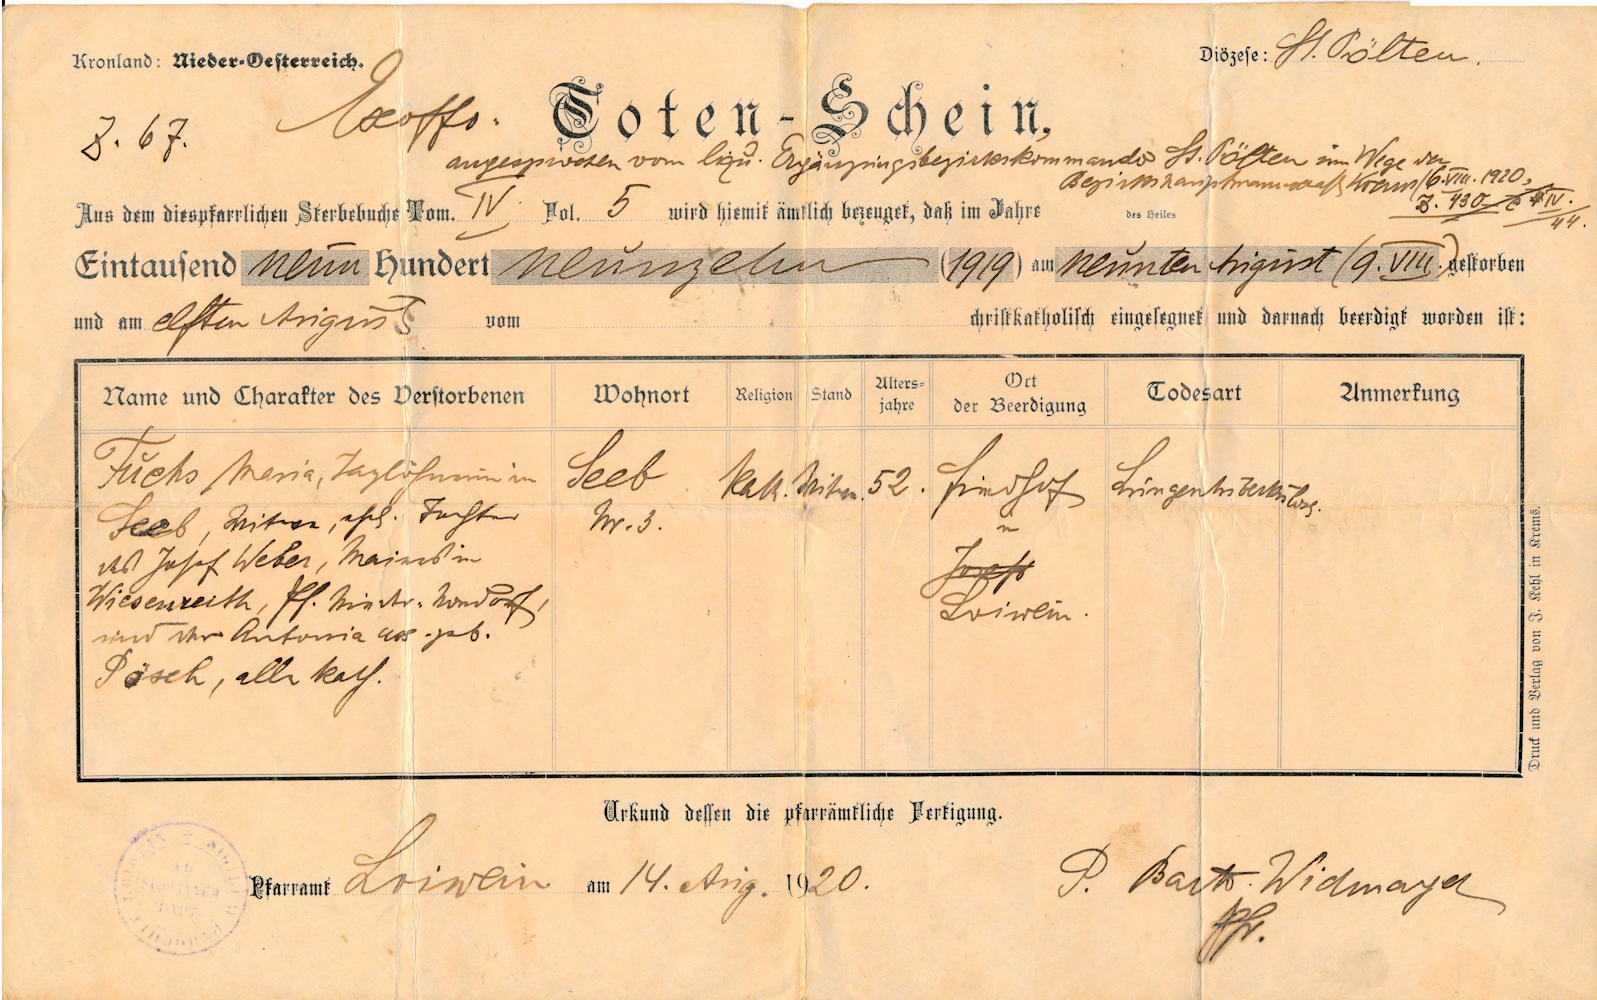 Kronland: Nieder-Oesterreich.
Diözese: St. Pölten.
Z. 67.
Exoffo.
Toten-Schein,
angesprochen vom liqu. Ergänzungsbezirkskommando St. Pölten im Wege der
Bezirkshauptmannschaft Krems 6. VIII. 1920,
Z. 430
IV.
44.
Aus dem diespfarrlichen Sterbebuche Tom. IV. Fol. 5 wird hiemit ämtlich bezeuget, daß im Jahre
des Heiles
Eintausend neun Hundert neunzehn (1919) am neunten August (9. VIII.) gestorben
und am elften August vom christkatholisch eingesegnet und darnach beerdigt worden ist:
Name und Charakter des Verstorbenen
Wohnort
Religion
Stand
Alters-
jahre
Ort
der Beerdigung
Todesart
Anmerkung
Fuchs Maria, Taglöhnerin in
Seeb, Witwe, ehel. Tochter
des Josef Weber, in
Wiesenreith, Pf.
und der Antonia geb.
Pösch, alle kath.
Seeb
Nr. 3.
kath.
Witwe.
52.
Friedhof
in
Loiwein.
Lungentuberkulose.
Druck und Verlag von J. Kehl in Krems.
Urkund dessen die pfarrämtliche Fertigung.
Pfarramt Loiwein am 14. Aug. 1920.
P. Barth. Widmayer
Pfr.